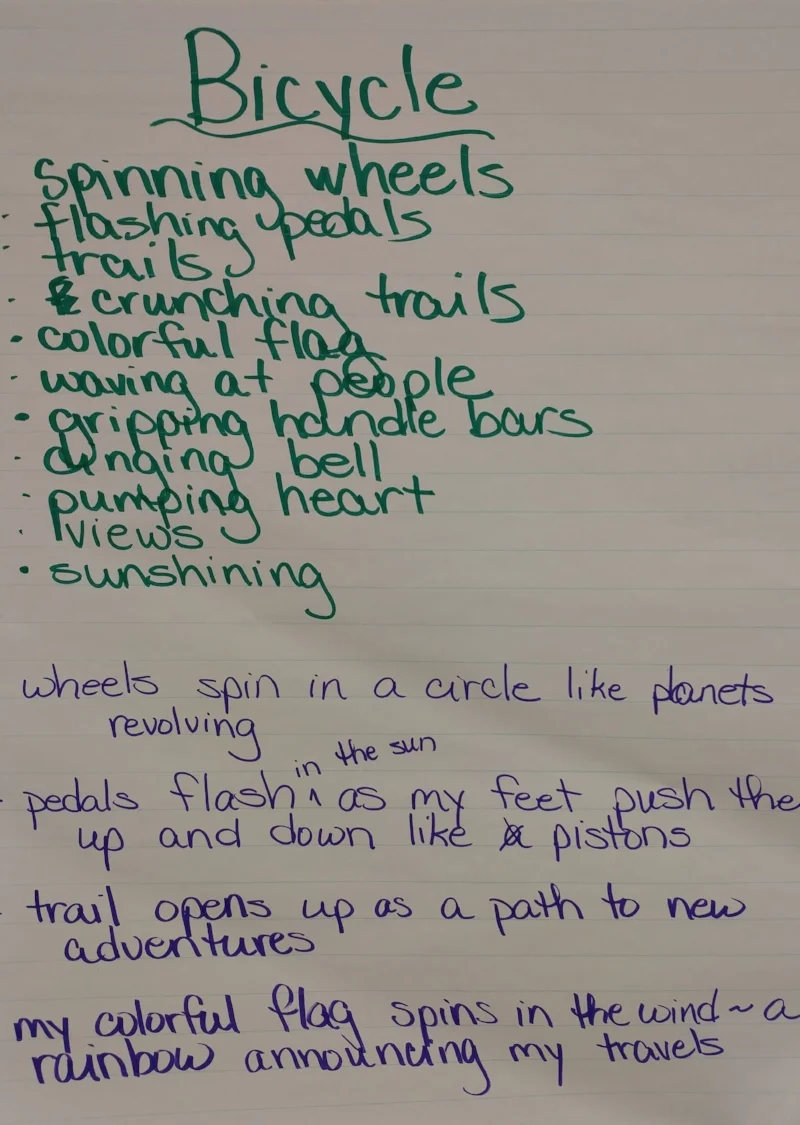 Bicycle
spinning wheels
· flashing pedals
· trails
· crunching trails
• colorful flag
· waving at people
• gripping handle bars
· dinging bell
· pumping heart
· views
• sunshining
wheels spin in a circle like planets
revolving
in the sun
- pedals flash ^ as my feet push the
up and down like pistons
- trail opens up as a path to new
adventures
my colorful flag spins in the wind ~ a
rainbow announcing my travels